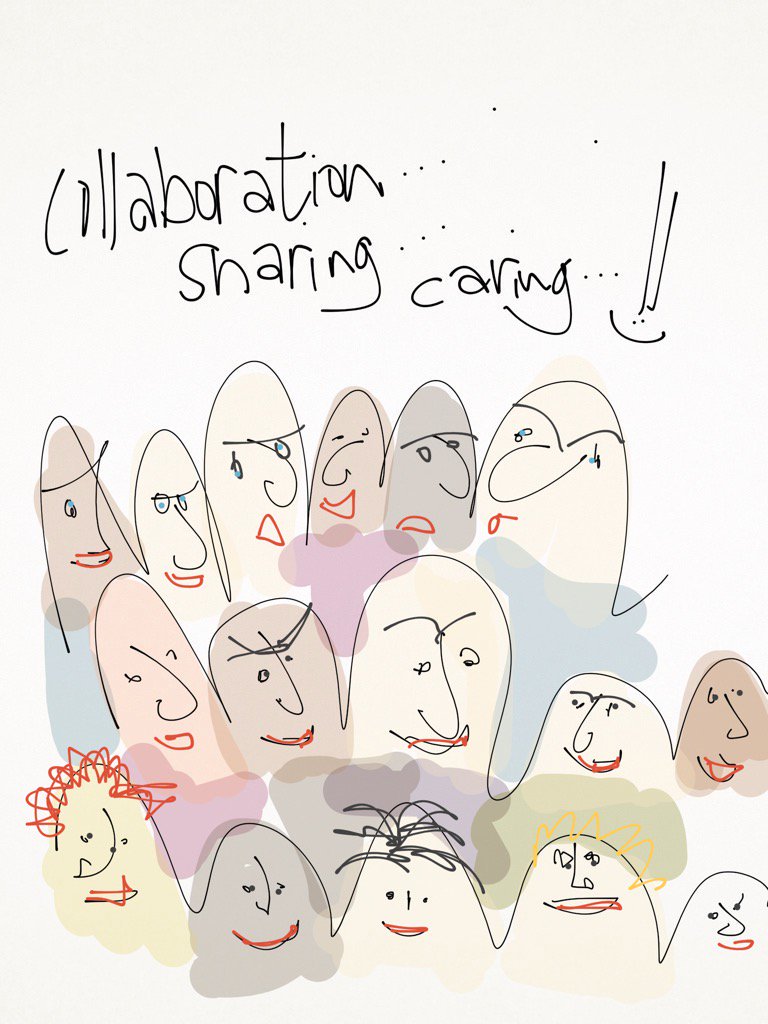 collaboration...
sharing... caring...!!